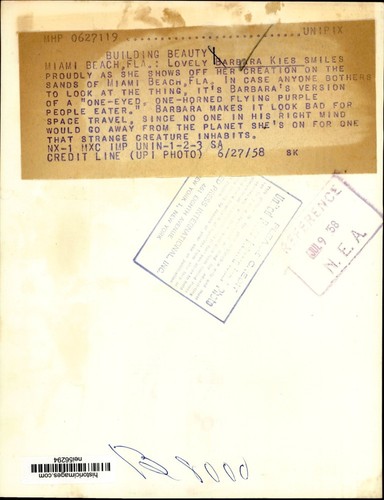 MHP 0627119 UNIPIX
BUILDING BEAUTY
MIAMI BEACH, FLA.: LOVELY BARBARA KIES SMILES
PROUDLY AS SHE SHOWS OFF HER CREATION ON THE
SANDS OF MIAMI BEACH, FLA. IN CASE ANYONE BOTHERS
TO LOOK AT THE THING, IT'S BARBARA'S VERSION
OF A "ONE-EYED, ONE-HORNED FLYING PURPLE
PEOPLE EATER." BARBARA MAKES IT LOOK BAD FOR
SPACE TRAVEL, SINCE NO ONE IN HIS RIGHT MIND
WOULD GO AWAY FROM THE PLANET SHE'S ON FOR ONE
THAT STRANGE CREATURE INHABITS.
NX-1 MXC IMP UNIN-1-2-3 SA
CREDIT LINE (UPI PHOTO) 6/27/58 SK
REFERENCE
JUL 9 '58
N. E. A.
PRESS INTERNATIONAL, INC.
8000
historicimages.com
nei56294